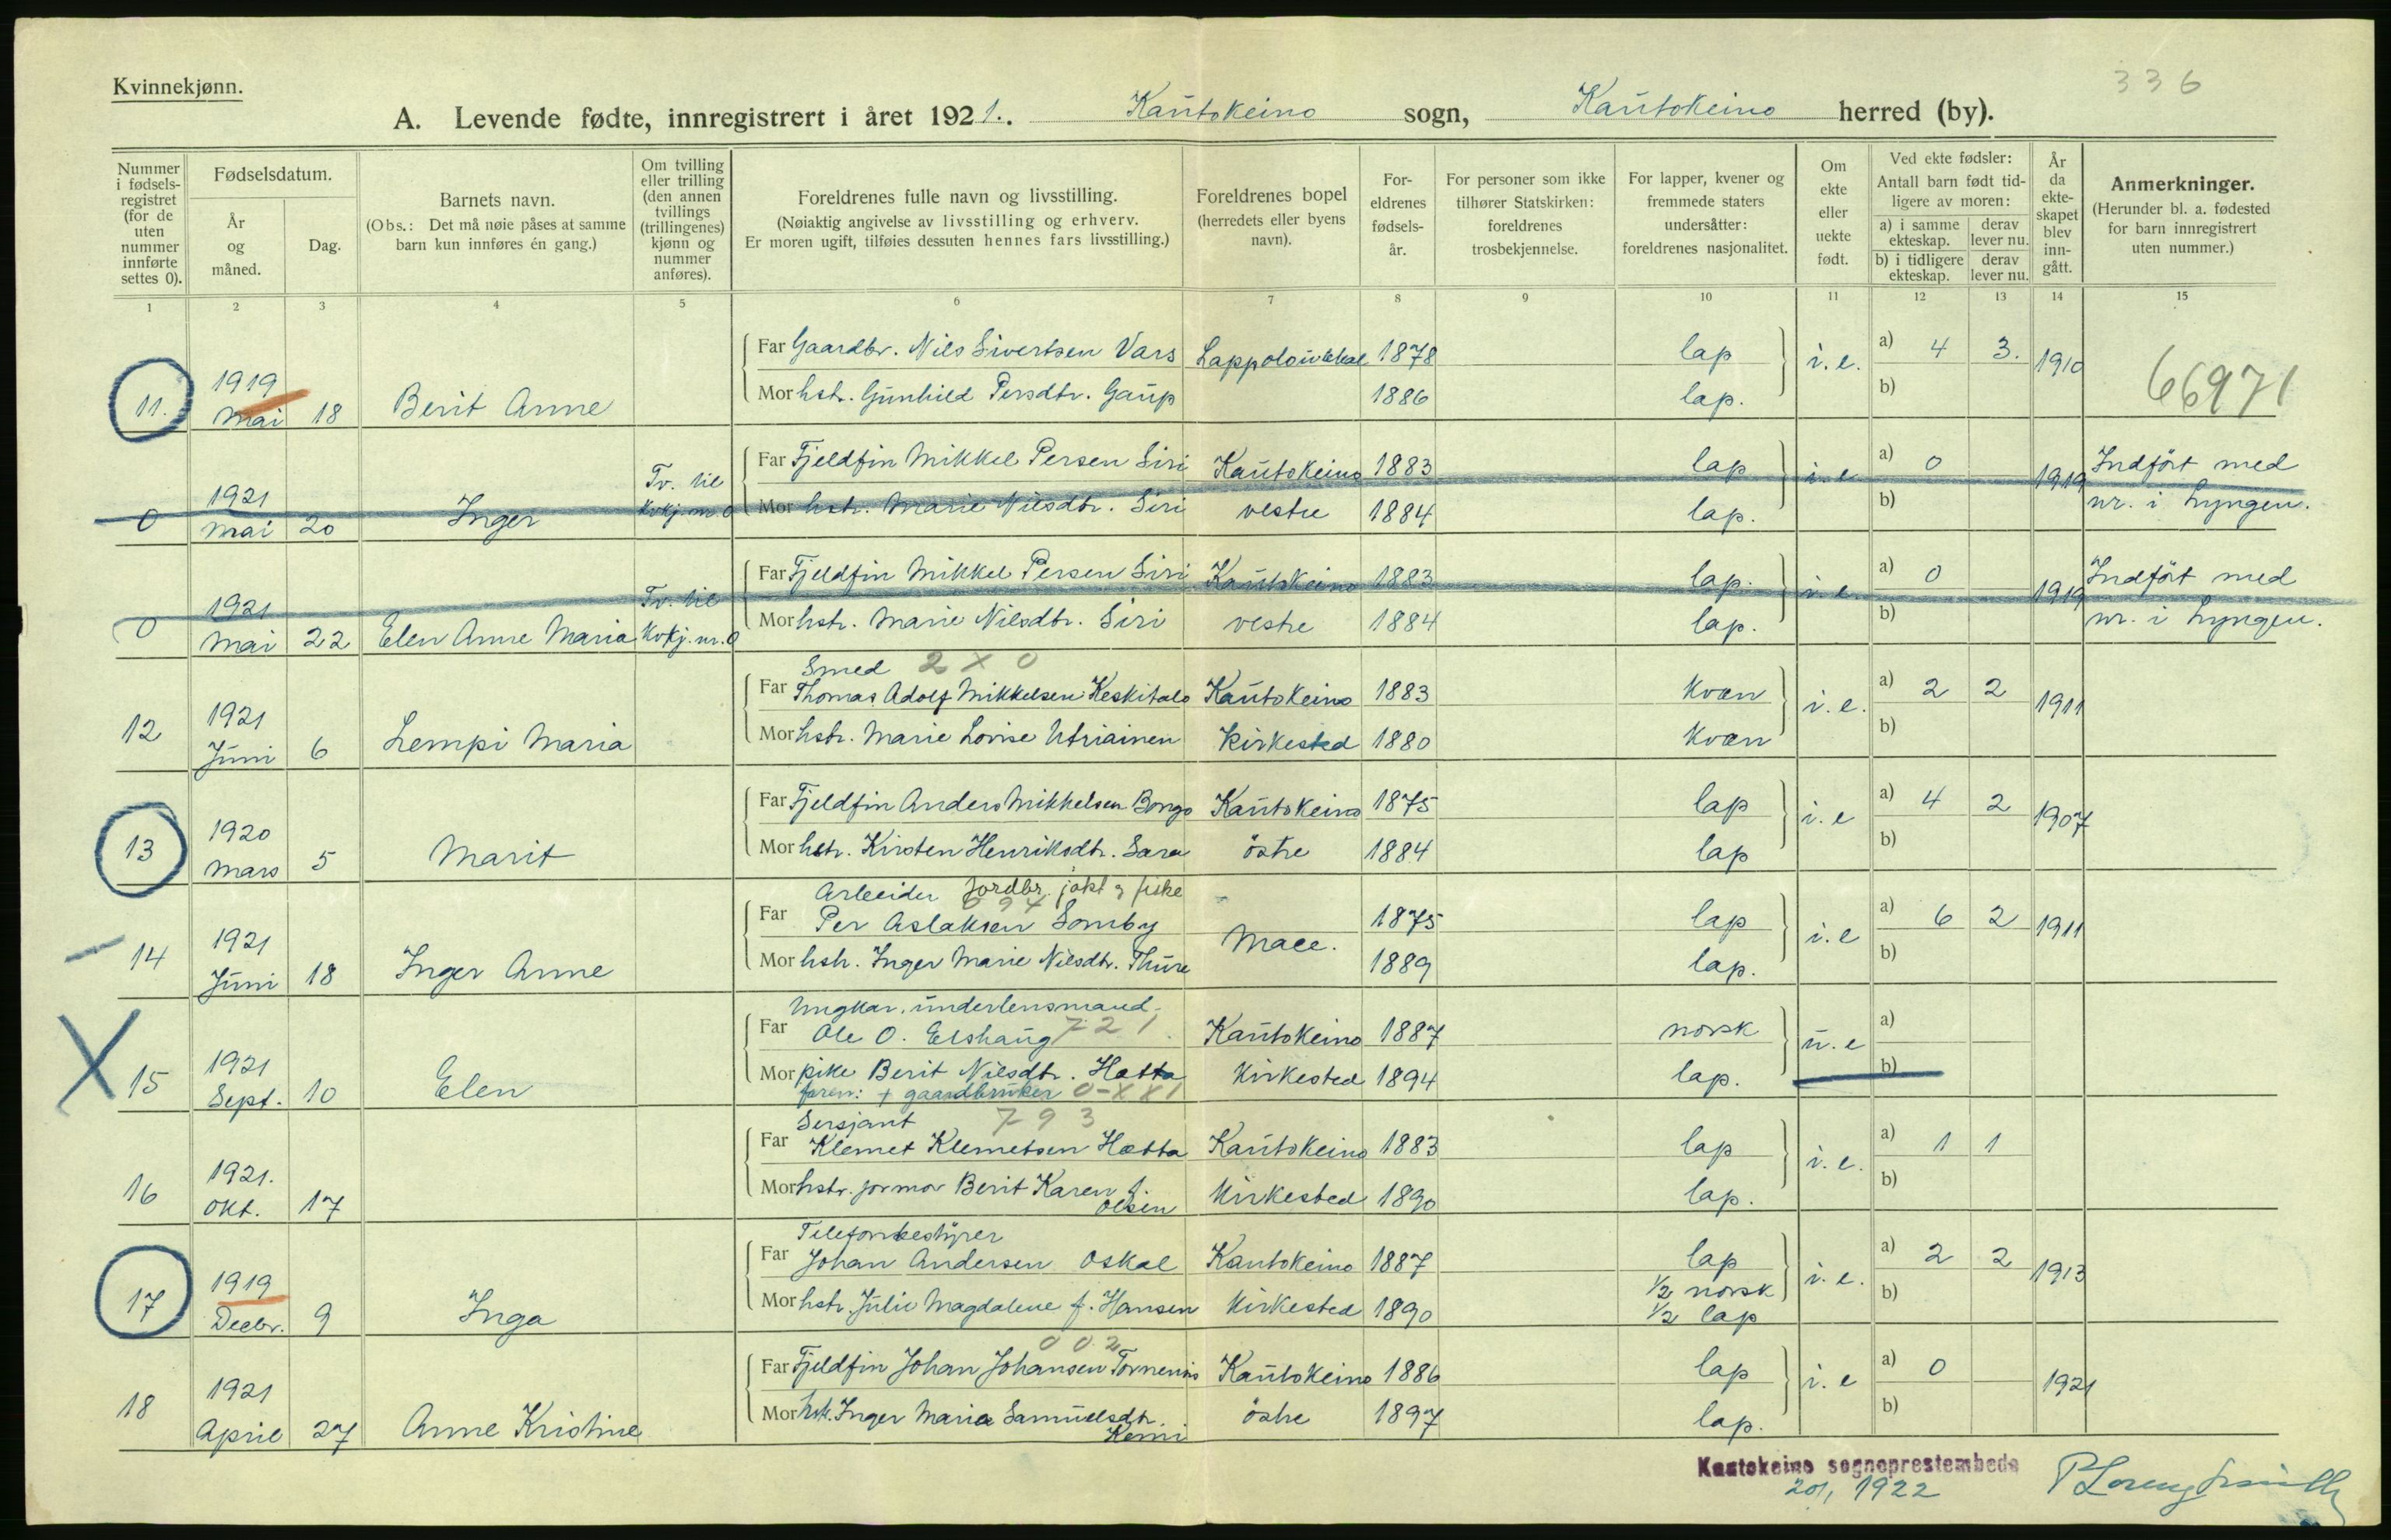 Kvinnekjønn.
336
A. Levende fødte, innregistrert i året 1921. Kaŭtokeino sogn, Kaŭtokeino herred (by).
Nummer i fødsels-registret (for de uten nummer innførte settes 0).
Fødselsdatum.
År og måned.
Dag.
Barnets navn.
(Obs.: Det må nøie påses at samme barn kun innføres én gang.)
Om tvilling eller trilling (den annen tvillings (trillingenes) kjønn og nummer anføres).
Foreldrenes fulle navn og livsstilling.
(Nøiaktig angivelse av livsstilling og erhverv.
Er moren ugift, tilføies dessuten hennes fars livsstilling.)
Foreldrenes bopel
(herredets eller byens navn).
For-eldrenes fødsels-år.
For personer som ikke tilhører Statskirken: foreldrenes trosbekjennelse.
For lapper, kvener og fremmede staters undersåtter: foreldrenes nasjonalitet.
Om ekte eller uekte født.
Ved ekte fødsler:
Antall barn født tid-ligere av moren:
a) i samme ekteskap.
derav lever nu.
b) i tidligere ekteskap.
derav lever nu.
År da ekte-skapet blev inn-gått.
Anmerkninger.
(Herunder bl. a. fødested for barn innregistrert uten nummer.)
1 2 3 4 5 6 7 8 9 10 11 12 13 14 15
11. 1919 Mai 18 Berit Anne
Far Gaardbr. Nils Sivertsen Vars Lappoloŭbbal 1878 lap i.e. a) 4 3. 1910
Mor hstr. Gŭnhild Persdtr. Gaŭp 1886 lap. b)
66971
0 1921 Mai 20 Inger Tv. til Kvkj. nr. 0
Far Fjeldfin Mikkel Persen Siri Kaŭtokeino 1883 lap i.e. a) 0 1919 Indført med
Mor hstr. Marie Nilsdtr. Siri vestre 1884 lap. b) nr. i Lyngen.
0 1921 Mai 22 Elen Anne Maria Tv. til Kvkj. nr. 0
Far Fjeldfin Mikkel Persen Siri Kaŭtokeino 1883 lap. i.e. a) 0 1919 Indført med
Mor hstr. Marie Nilsdtr. Siri vestre 1884 lap. b) nr. i Lyngen.
12 1921 Jŭni 6 Lempi Maria
Smed 2 X 0
Far Thomas Adolf Mikkelsen Keskitalo Kaŭtokeino 1883 Kvæn i.e. a) 2 2 1911
Mor hstr. Marie Lovise Utriainen Kirkested 1880 Kvæn b)
13 1920 Mars 5 Marit
Far Fjeldfin Anders Mikkelsen Bongo Kaŭtokeino 1875 lap i.e a) 4 2 1907
Mor hstr. Kirsten Henriksdtr. Sara östre 1884 lap b)
14 1921 Jŭni 18 Inger Anne
Arbeider Jordbr. jakt & fiske
Far Per Aslaksen Somby Mace. 1875 lap i.e a) 6 2 1911
Mor hstr. Inger Marie Nilsdtr. Thŭre 1889 lap. b)
X 15 1921 Sept. 10 Elen
Ungkar. ŭnderlensmand
Far Ole O. Elshaŭg 721 Kaŭtokeino 1887 norsk ŭ.e a)
Mor pike Berit Nilsdtr. Hætta Kirkested 1894 lap. b)
faren: + gaardbrŭker 0-XX1
16 1921. Okt. 17
Sersjant 793
Far Klemet Klemetsen Hætta Kaŭtokeino 1883 lap i.e. a) 1 1
Mor hstr. jormor Berit Karen f. Olsen Kirkested 1890 lap. b)
17 1919 Decbr. 9 Inga
Telefonbestyrer
Far Johan Andersen Oskal Kantokeino 1887 lap i.e. a) 2 2 1913
Mor hstr. Julie Magdalene f. Hansen Kirkested 1890 ½ norsk ½ lap b)
18 1921 April 27 Anne Kristine
002
Far Fjeldfin Johan Johansen Tornensis Kaŭtokeino 1886 lap i.e a) 0 1921
Mor hstr. Inger Maria Samŭelsdtr. Kemi östre 1897 lap. b)
Kautokeino sogneprestembede
20/1 1922